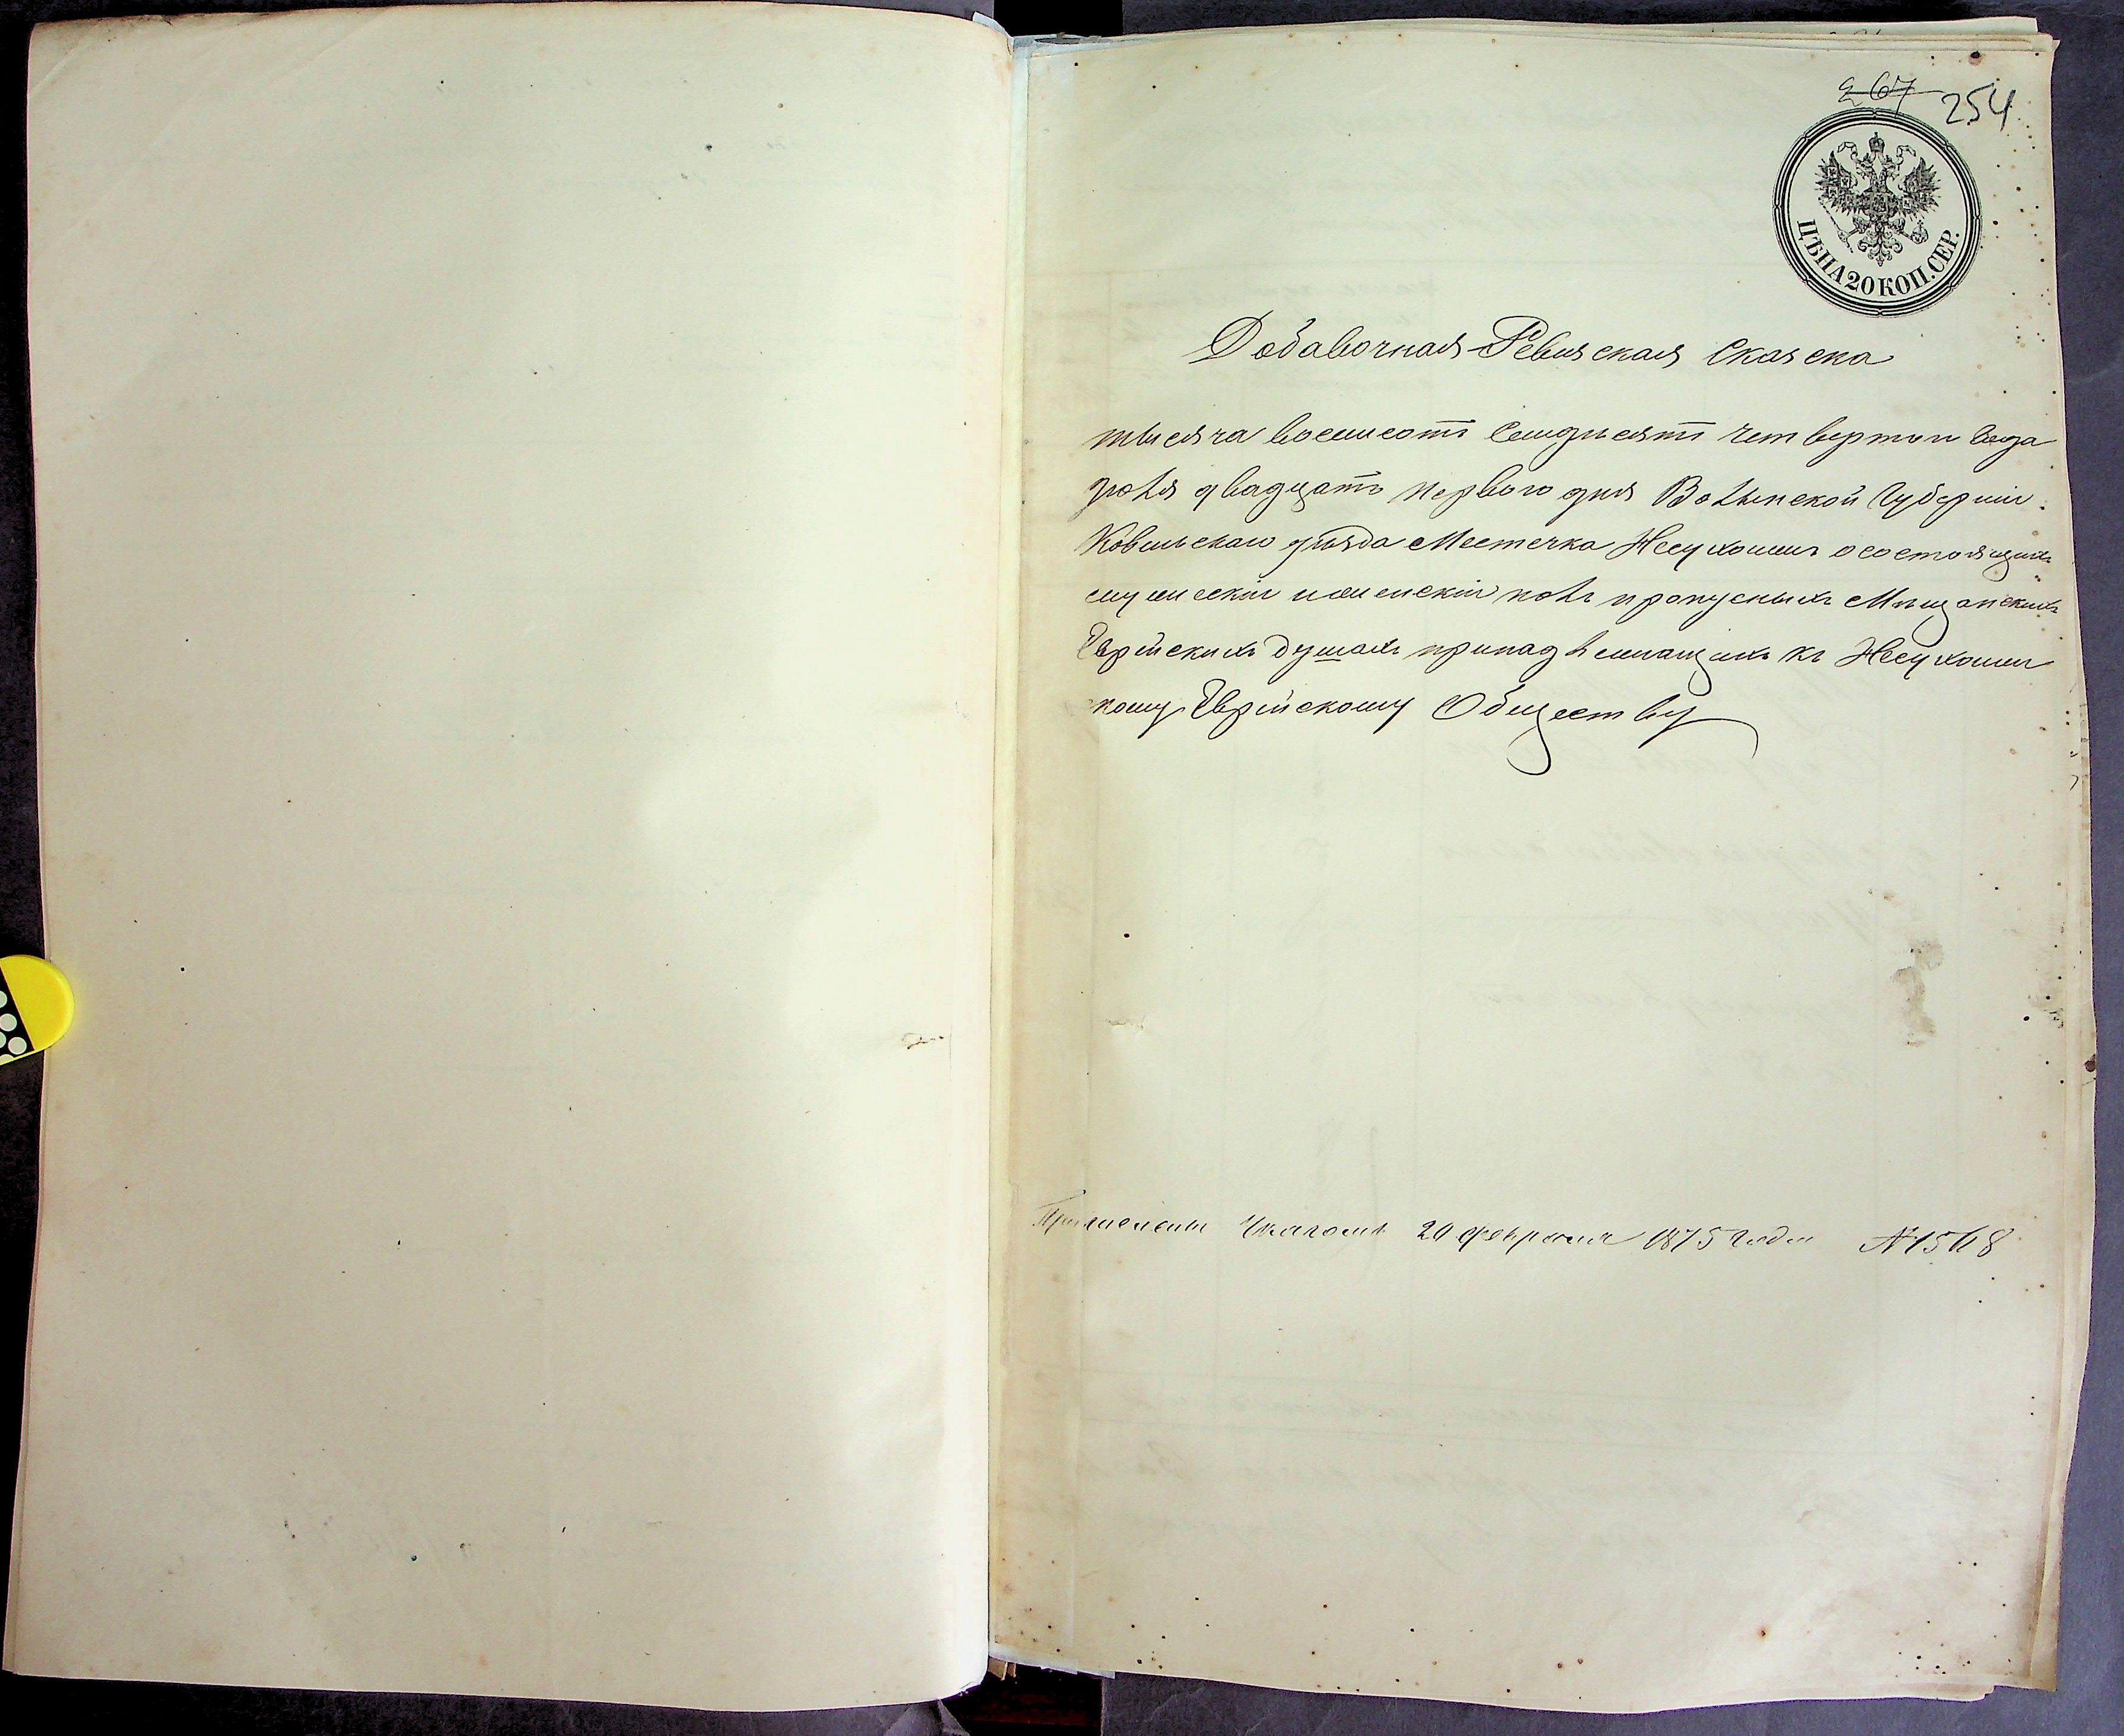 267 254
ЦѢНА 20 КОП. СЕР.
Добавочная Ревизская Сказка
тысяча восемсотъ семдисятъ четвертого года
июля двадцать перваго дня Волынской Губерніи
Ковельскаго уѣзда Местечка Несухоижъ о состоящихъ
мужескій и женскій полъ пропусныхъ Мѣщанскихъ
Еврейскихъ душахъ принадлежащихъ къ Несухоиж
кому Еврейскому Обществу
Указомъ 20 февраля 1875 года № 1568